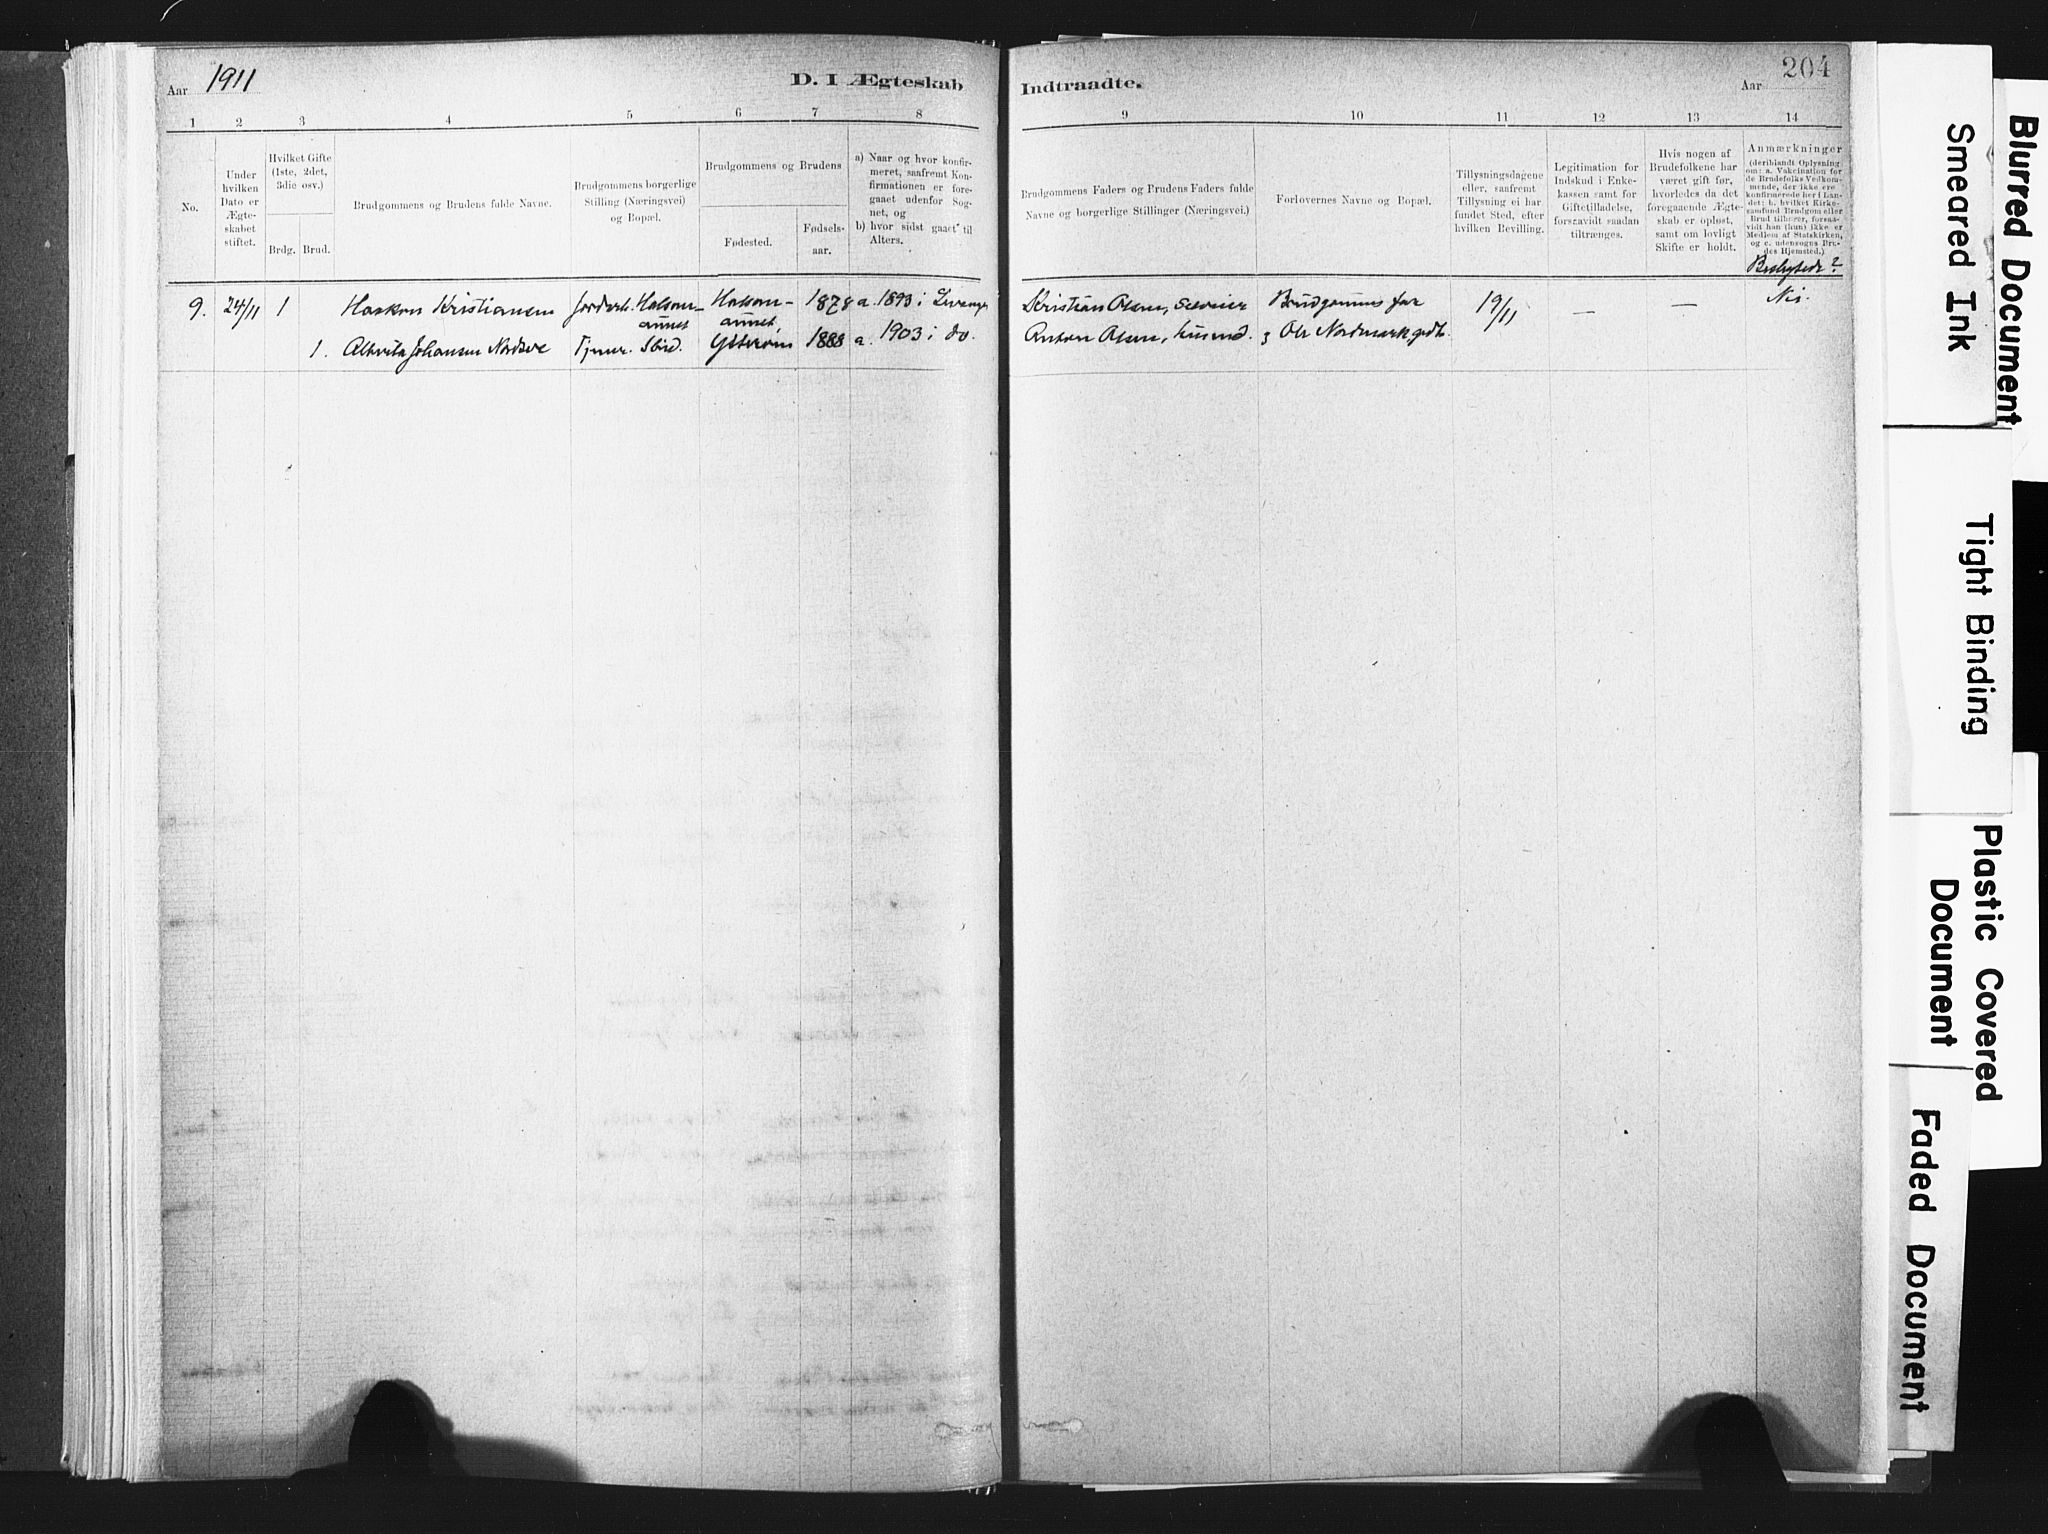 Aar 1911
D. I Ægteskab
Indtraadte.
Aar
204
1 2 3 4 5 6 7 8
9 10 11 12 13 14
No.
Under
hvilken
Dato er
Ægte-
skabet
stiftet.
Hvilket Gifte
(1ste, 2det,
3die osv.)
Brdg. Brud.
Brudgommens og Brudens fulde Navne.
Brudgommens borgerlige
Stilling (Næringsvei)
og Bopæl.
Brudgommens og Brudens
Fødested.
Fødsels-
aar.
a) Naar og hvor konfir-
meret, saafremt Kon-
firmationen er fore-
gaaet udenfor Sog-
net, og
b) hvor sidst gaaet til
Alters.
Brudgommens Faders og Brudens Faders fulde
Navne og borgerlige Stillinger (Næringsvei.)
Forlovernes Navne og Bopæl.
Tillysningsdagene
eller, saafremt
Tillysning ei har
fundet Sted, efter
hvilken Bevilling.
Legitimation for
Indskud i Enke-
kassen samt for
Giftetilladelse,
forsaavidt saadan
tiltrænges.
Hvis nogen af
Brudefolkene har
været gift før,
hvorledes da det
foregaaende Ægte-
skab er opløst,
samt om lovligt
Skifte er holdt.
Anmærkninger
(deriblandt Oplysning
om: a. Vakcination for
de Brudefolks Vedkom-
mende, der ikke ere
konfirmerede her i Lan-
det; b. hvilket Kirke-
samfund Brudgom eller
Brud tilhører, forsaa-
vidt han (hun) ikke er
Medlem af Statskirken,
og c. udensogns Bru-
des Hjemsted.)
Beslegtede?
9. 24/11 1 Haakon Kristiansen 1878 a. 1893 i Levanger Kristian Olsen, Brudgommens far 19/11 — — Nei.
1. Johansen 1888 a. 1903 i do. Anton Olsen, husmd. Ole Nordmark,
Blurred Document
Smeared Ink
Tight Binding
Plastic Covered
Document
Faded Document